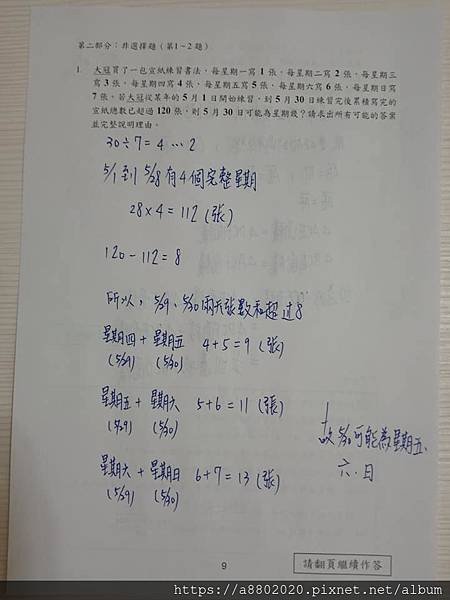 第二部分：非選擇題（第1～2題）
1. 大冠買了一包宣紙練習書法，每星期一寫 1 張，每星期二寫 2 張，每星期三
寫 3 張，每星期四寫 4 張，每星期五寫 5 張，每星期六寫 6 張，每星期日寫
7 張。若大冠從某年的 5 月 1 日開始練習，到 5 月 30 日練習完後累積寫完的
宣紙總數已超過 120 張，則 5 月 30 日可能為星期幾？請求出所有可能的答案
並完整說明理由。
30÷7=4…2
5/1到5/28有4個完整星期
28×4=112(張)
120-112=8
所以，5/29、5/30兩天張數和超过8
星期四+星期五 4+5=9(張)
(5/29) (5/30)
星期五+星期六 5+6=11(張)
(5/29) (5/30)
故5/30可能為星期五、
六、日
星期六+星期日 6+7=13(張)
(5/29) (5/30)
9
請翻頁繼續作答
https://a8802020.pixnet.net/album